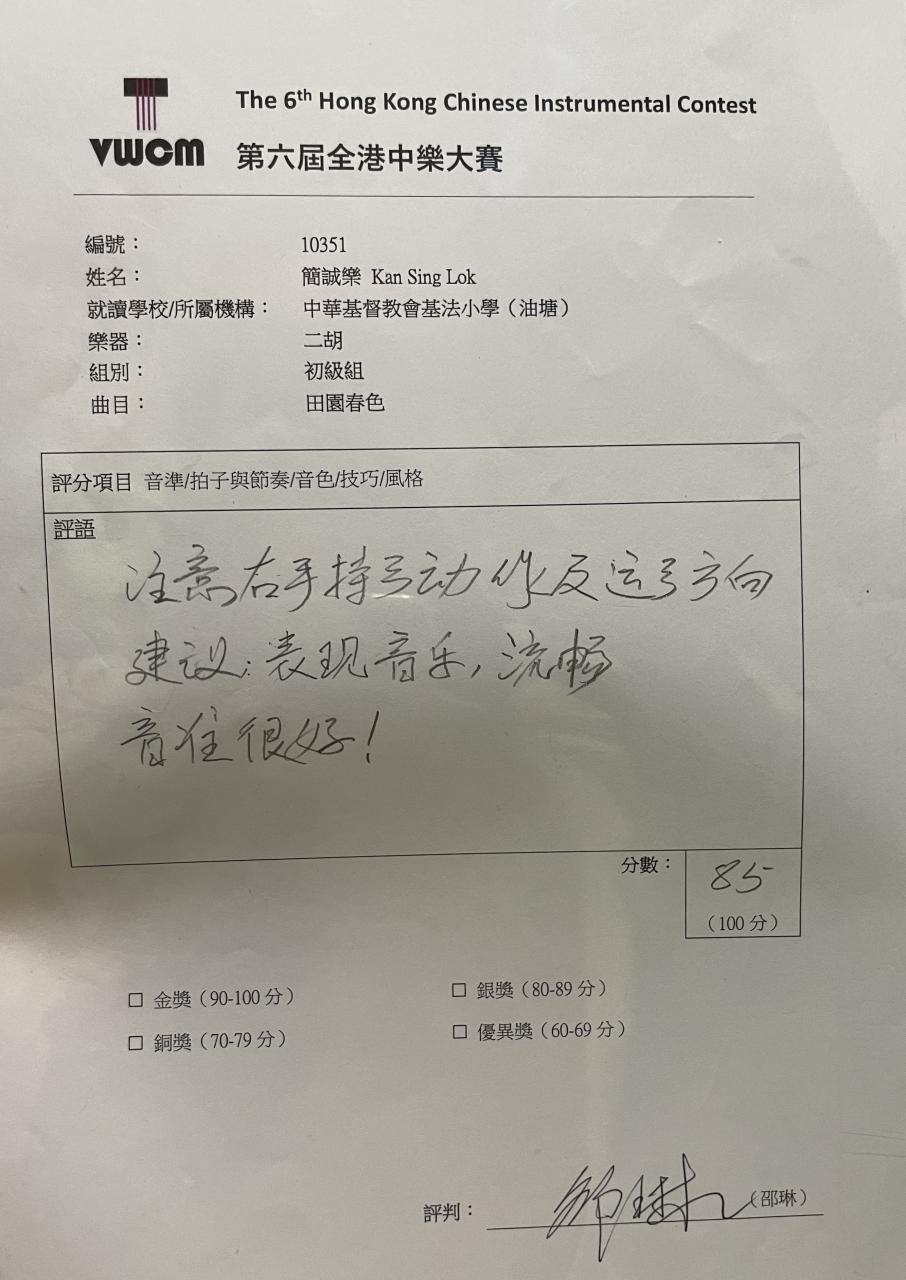 VWCM
The 6th Hong Kong Chinese Instrumental Contest
第六屆全港中樂大賽
編號： 10351
姓名： 簡誠樂 Kan Sing Lok
就讀學校/所屬機構： 中華基督教會基法小學（油塘）
樂器： 二胡
組別： 初級組
曲目： 田園春色
評分項目 音準/拍子與節奏/音色/技巧/風格
評語
注意右手持弓动作及运弓方向
建议：表现音乐，流畅
音准很好！
分數： 85
（100 分）
□ 金獎（90-100 分） □ 銀獎（80-89 分）
□ 銅獎（70-79 分） □ 優異獎（60-69 分）
評判： 邵琳 （邵琳）